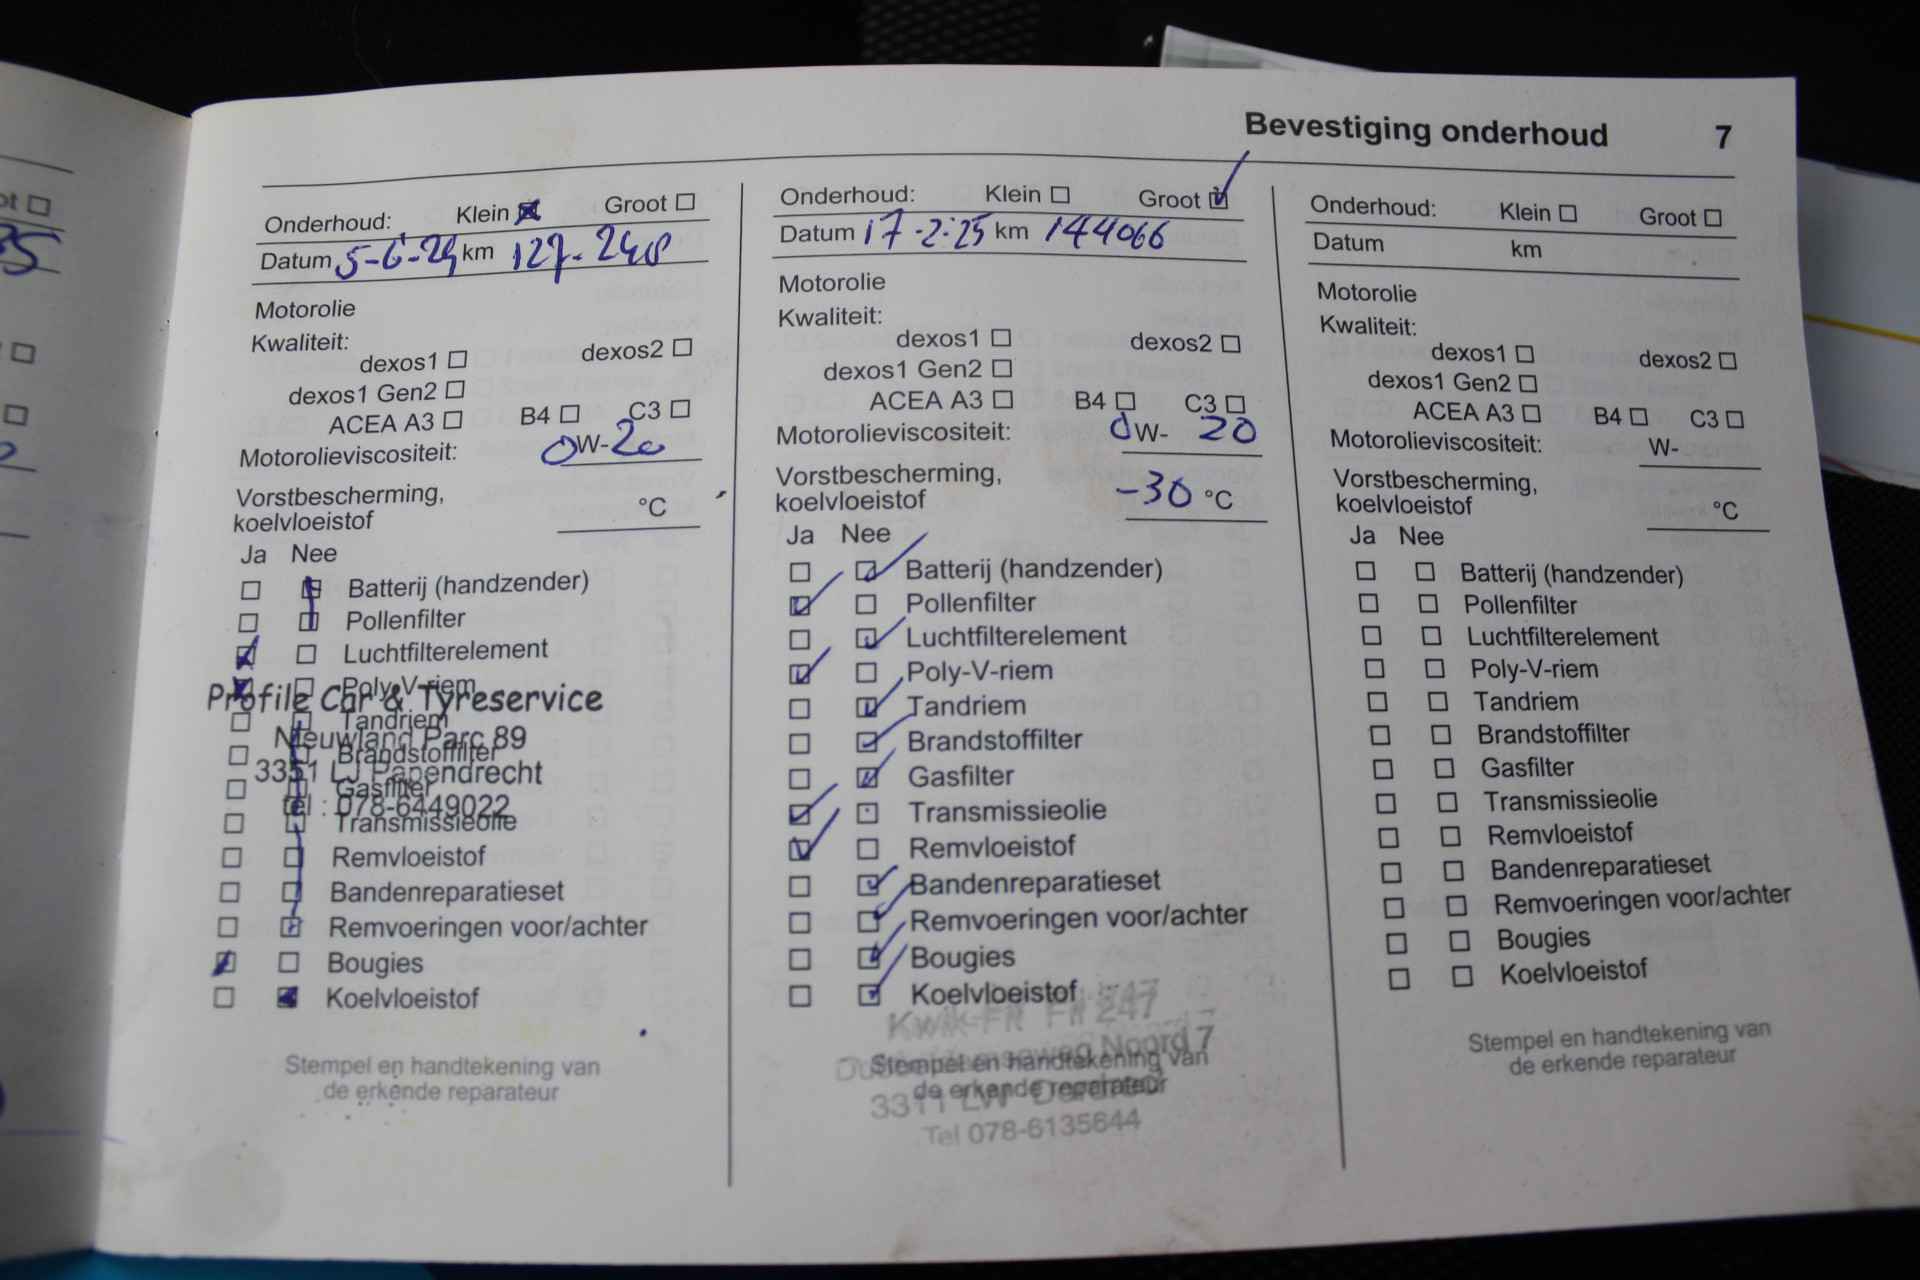 Bevestiging onderhoud 7
Onderhoud: Klein Groot
Datum 5-6-24 km 127-248
Motorolie
Kwaliteit:
dexos1 dexos2
dexos1 Gen2
ACEA A3 B4 C3
Motorolieviscositeit: 0W-20
Vorstbescherming,
koelvloeistof °C
Ja Nee
Batterij (handzender)
Pollenfilter
Luchtfilterelement
Poly-V-riem
Profile Car & Tyreservice
Tandriem
Nieuwland Parc 89
Brandstoffilter
3351 LJ Papendrecht
Gasfilter
tel : 078-6449022
Transmissieolie
Remvloeistof
Bandenreparatieset
Remvoeringen voor/achter
Bougies
Koelvloeistof
Stempel en handtekening van
de erkende reparateur
Onderhoud: Klein Groot
Datum 17-2-25 km 144066
Motorolie
Kwaliteit:
dexos1 dexos2
dexos1 Gen2
ACEA A3 B4 C3
Motorolieviscositeit: 0W- 20
Vorstbescherming,
koelvloeistof -30 °C
Ja Nee
Batterij (handzender)
Pollenfilter
Luchtfilterelement
Poly-V-riem
Tandriem
Brandstoffilter
Gasfilter
Transmissieolie
Remvloeistof
Bandenreparatieset
Remvoeringen voor/achter
Bougies
Koelvloeistof
Kwik-Fit Fit 247
Noord 7
Stempel en handtekening van
de erkende reparateur
3311 LW
Tel 078-6135644
Onderhoud: Klein Groot
Datum km
Motorolie
Kwaliteit:
dexos1 dexos2
dexos1 Gen2
ACEA A3 B4 C3
Motorolieviscositeit: W-
Vorstbescherming,
koelvloeistof °C
Ja Nee
Batterij (handzender)
Pollenfilter
Luchtfilterelement
Poly-V-riem
Tandriem
Brandstoffilter
Gasfilter
Transmissieolie
Remvloeistof
Bandenreparatieset
Remvoeringen voor/achter
Bougies
Koelvloeistof
Stempel en handtekening van
de erkende reparateur